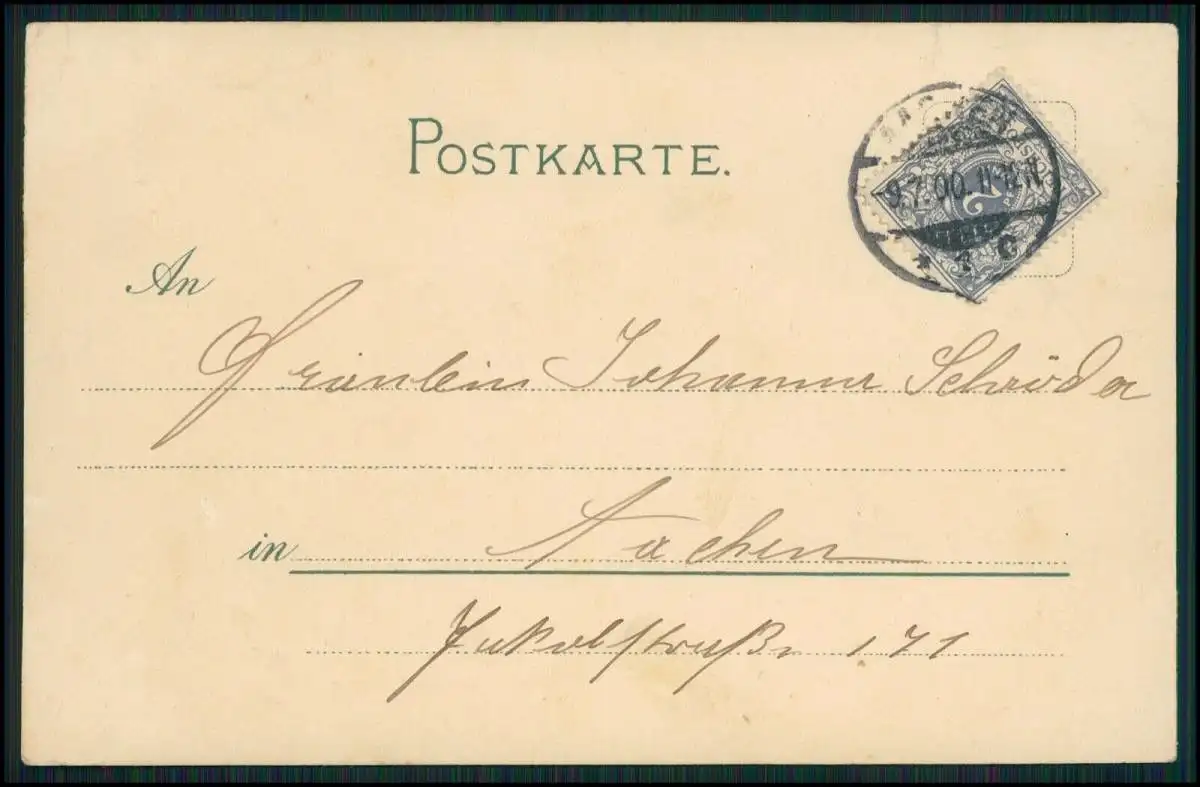 POSTKARTE.
AACHEN
9.7.00. 11-12.N
* 1 C
2
An
Fräulein Johanna Schröder
in Aachen
Jakobstraße 171